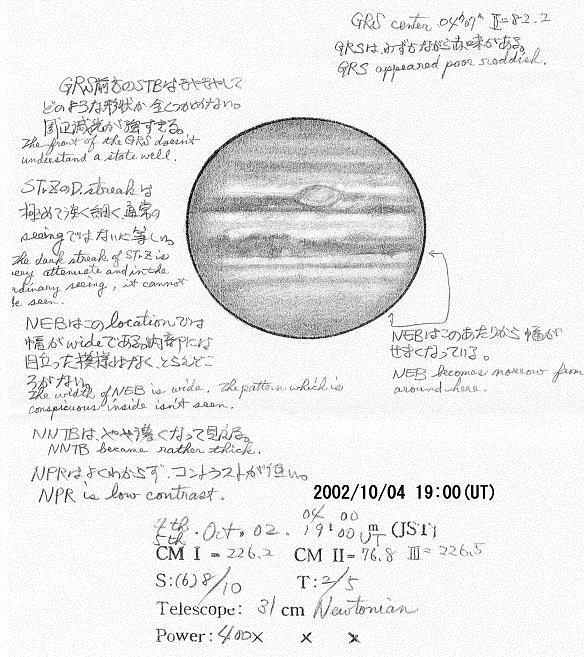 GRS center 04h07m II=82.2
GRSは、わずかながら赤味がある。
GRS appeared poor reddish.
GRS前方のSTBはもやもやして
どのような形状か全くつかめない。
周辺減光が強すぎる。
The front of the GRS doesn't
understand a state well.
STrZのD.streakは
極めて淡く細く通常の
seeingではないに等しい。
The dark streak of STrZ is
very attenuate and in the
ordinary seeing, it cannot
be seen.
NEBはこのlocationでは
幅がwideである。内部には
目立った模様はなく、とらえどこ
ろがない。
The width of NEB is wide. The pattern which is
conspicuous inside isn't seen.
NEBはこのあたりから幅が
せまくなっている。
NEB becomes norrow from
around here.
NNTBは、やや濃くなって見える。
NNTB became rather thick.
NPRはよくわからず、コントラストが低い。
NPR is low contrast.
2002/10/04 19:00(UT)
04 00
4th
5th . Oct. 02. 19h00m UT (JST)
CM I = 226.2 CM II= 76.8 III= 226.5
S:(6)8/10 T:2/5
Telescope: 31cm Newtonian
Power: 400x x x